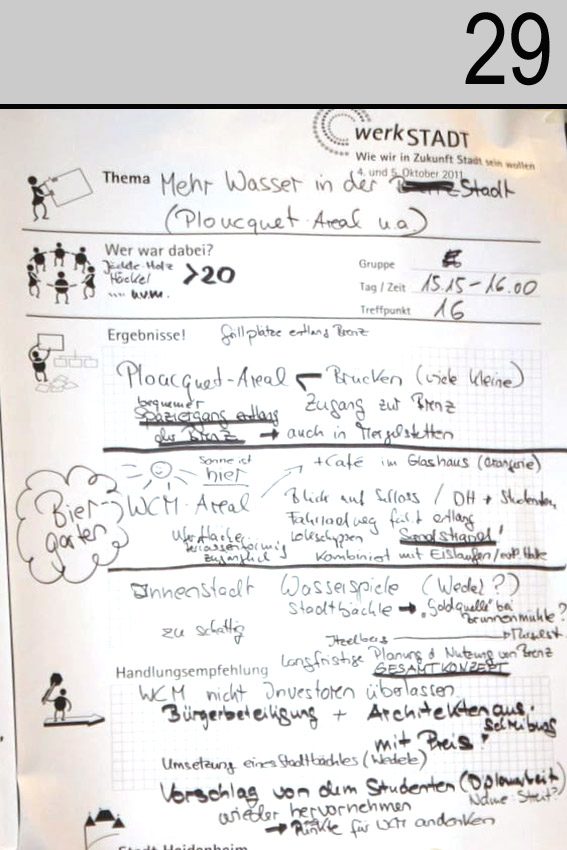 29
werkSTADT
Wie wir in Zukunft Stadt sein wollen
4. und 5. Oktober 2011
Thema Mehr Wasser in der Stadt
(Ploucquet-Areal u.a.)
Wer war dabei?
>20
.... uvm.
Gruppe
Tag / Zeit 15.15-16.00
Treffpunkt 16
Ergebnisse! Grillplätze entlang Brenz
Ploucquet-Areal Brücken (viele kleine)
bequemer Zugang zur Brenz
Spaziergang entlang
der Brenz → auch in Mergelstetten
Sonne ist
hier
+Café im Glashaus (Orangerie)
Bier-
garten
WCM-Areal Blick auf Schloss / DH + Studenten
Fahrradweg führt entlang
Uferfläche
terrassenförmig
zugänglich
"Sandstrand"
kombiniert mit Eislaufen
Innenstadt Wasserspiele (Wedel?)
Stadtbächle → "Goldquelle" bei
Brunnenmühle?
zu schattig
Itzelberg
Langfristige Planung d. Nutzung von Brenz
GESAMTKONZEPT
Handlungsempfehlung
WCM nicht Investoren überlassen
Bürgerbeteiligung + Architektenaus-
schreibung
mit Preis!
Umsetzung eines Stadtbächles (Wedele)
Vorschlag von dem Studenten (Diplomarbeit)
wieder hervornehmen
→ Punkte für andenken
Stadt Heidenheim